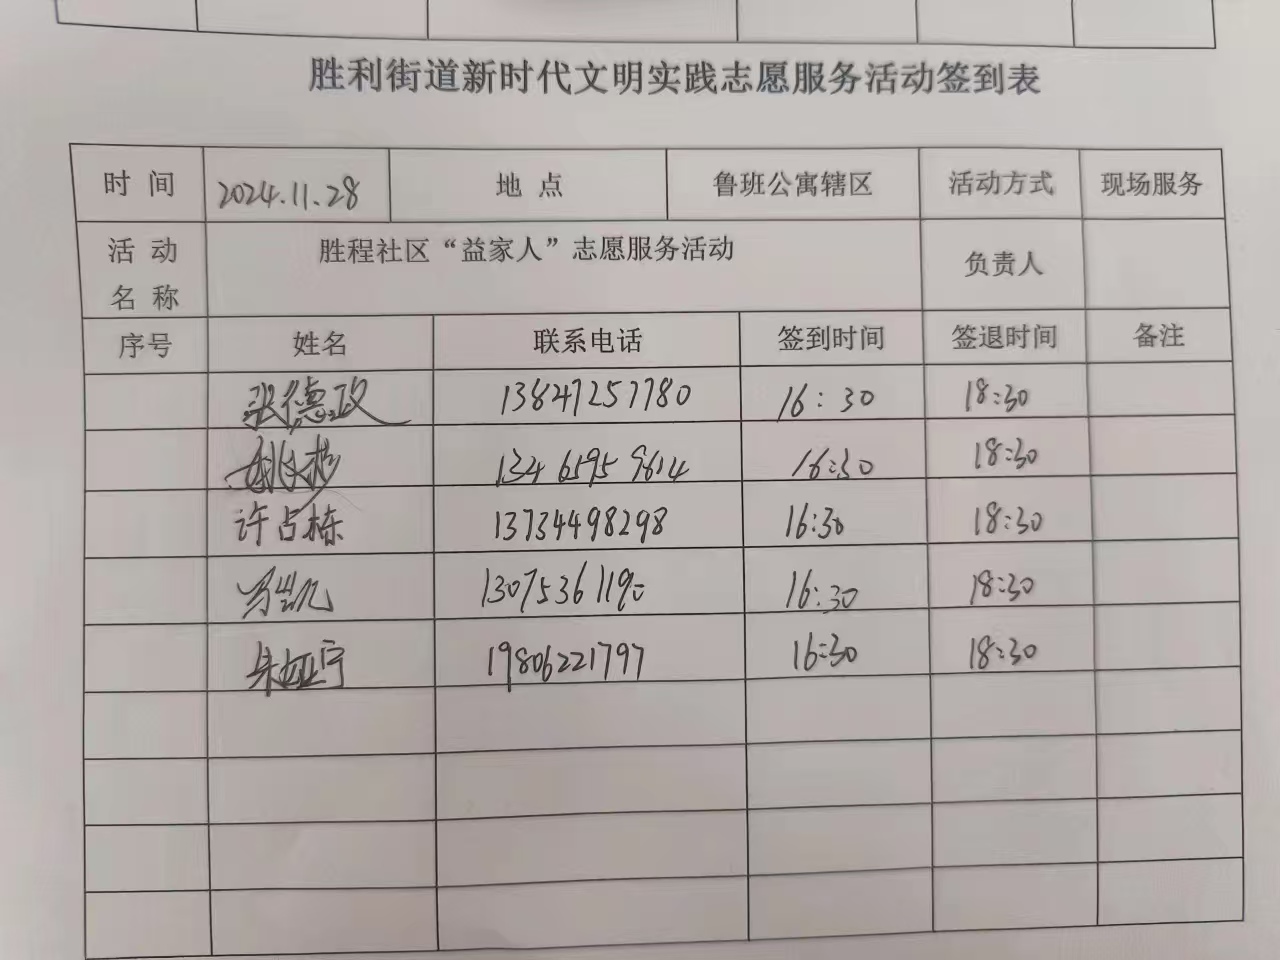 胜利街道新时代文明实践志愿服务活动签到表
时 间 2024.11.28 地 点 鲁班公寓辖区 活动方式 现场服务
活 动 名 称 胜程社区“益家人”志愿服务活动 负责人
序号 姓名 联系电话 签到时间 签退时间 备注
张德政 13647257780 16:30 18:30
16:30 18:30
许占栋 13734498298 16:30 18:30
马凯 13075361190 16:30 18:30
朱亚宁 19806221797 16:30 18:30